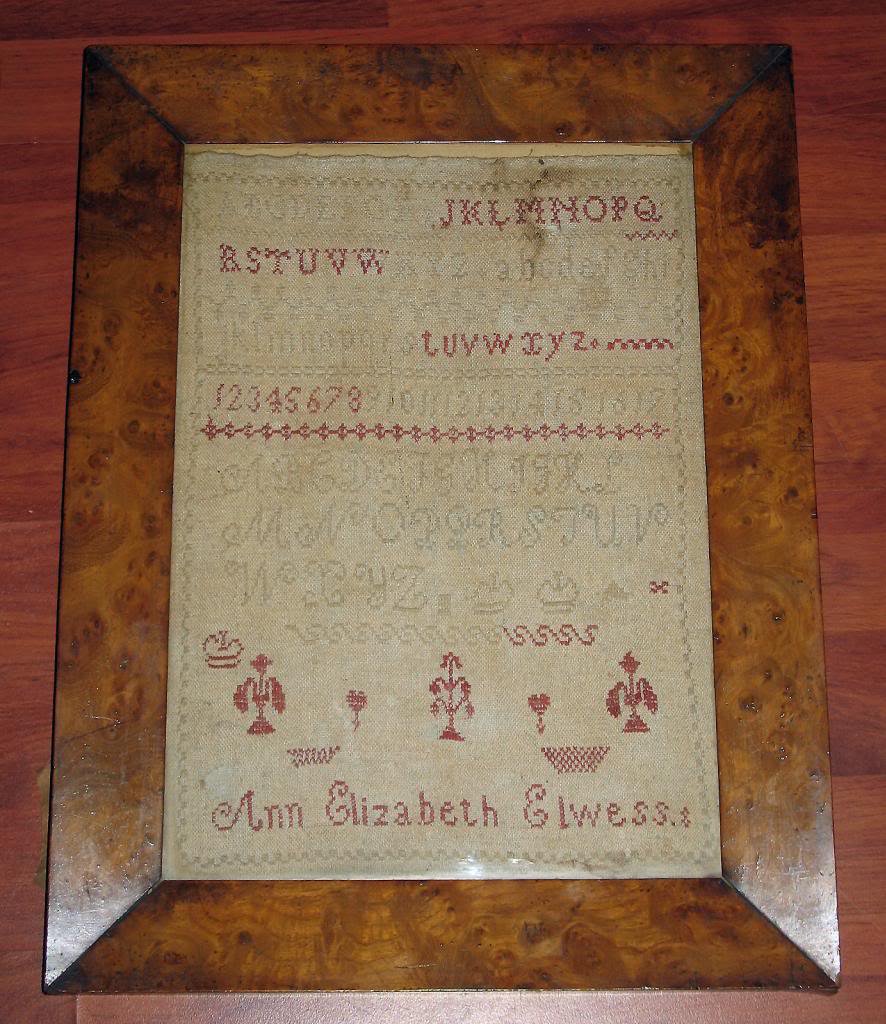 JKLMNOPQ
RSTUVW XYZ abcdefgh
tuvwxyz
1234567891011121314151617
ABCDEFGHIJKL
MNOPQRSTUV
WXYZ
Ann Elizabeth Elwess